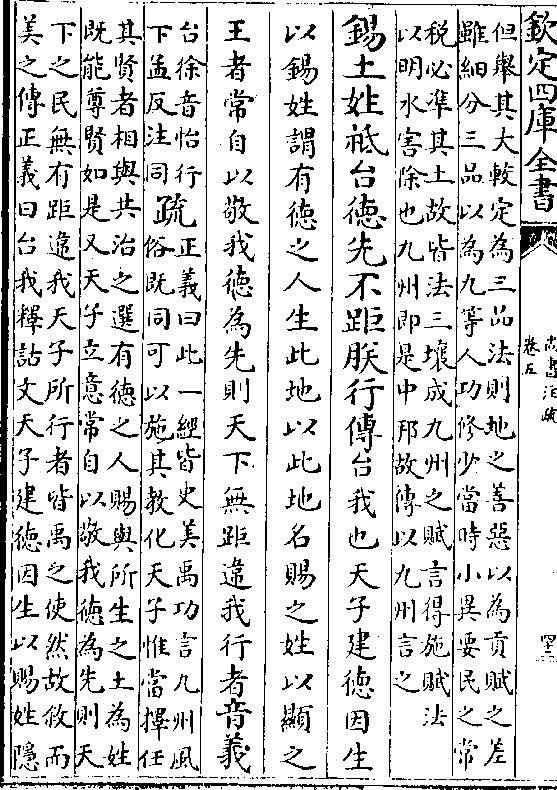 欽定四庫全書
尚書注疏
卷五
但舉其大較定為三品法則地之善惡以為貢賦之差
雖細分三品以為九等人功修少當時小異要民之常
税必準其土故皆法三壤成九州之賦言得施賦法
以明水害除也九州即是中邦故傳以九州言之
錫土姓祗台德先不距朕行傳台我也天子建德因生
以錫姓謂有德之人生此地以此地名賜之姓以顯之
王者常自以敬我德為先則天下無距違我行者音義
台徐音怡行
下孟反注同
疏正義曰此一經皆史美禹功言九州風
俗既同可以施其教化天子惟當擇任
其賢者相與共治之選有德之人賜與所生之土為姓
既能尊賢如是又天子立意常自以敬我德為先則天
下之民無有距違我天子所行者皆禹之使然故敘而
美之傳正義曰台我釋詁文天子建德因生以賜姓隱